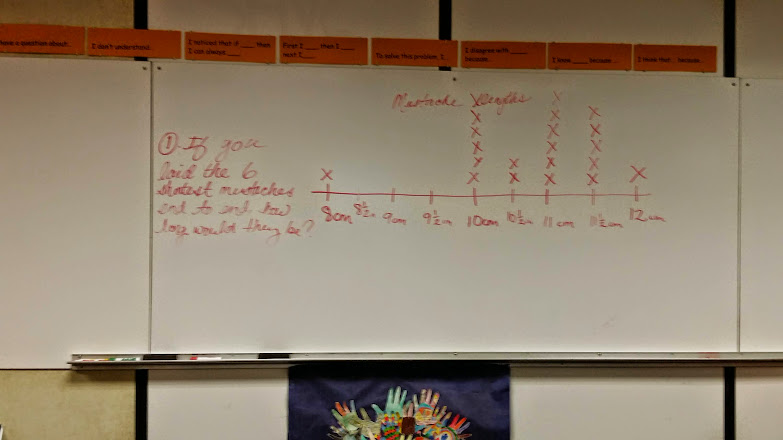 have a question about...
I don't understand...
I noticed that if ____ then
I can always ____.
First I ____ then I ____
next I____.
To solve this problem, I...
I disagree with ____
because...
I know ____ because...
I think that... because...
Mustache Lengths
① If you
laid the 6
shortest mustaches
end to end how
long would they be?
X X X X X X X X X X X X X X X X X X X X X
8cm 8½cm 9cm 9½cm 10cm 10½cm 11cm 11½cm 12cm